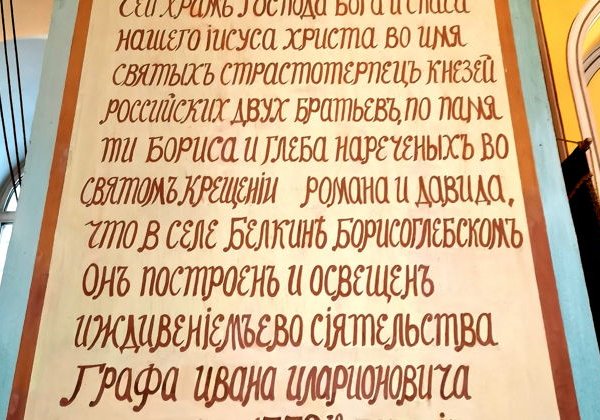 сей храмъ господа бога и спаса
нашего іисуса христа во имя
святыхъ страстотерпецъ князей
россійскихъ двухъ братьевъ, по памя
ти бориса и глеба нареченыхъ во
святомъ крещеніи романа и давида,
что в селе Белкинѣ Борисоглебскомъ
онъ построенъ и освещенъ
иждивеніемъ его сіятельства
Графа ивана иларионовича